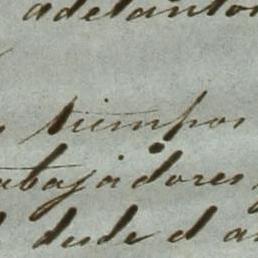 adelanto
tiempos
abajadores
desde el a